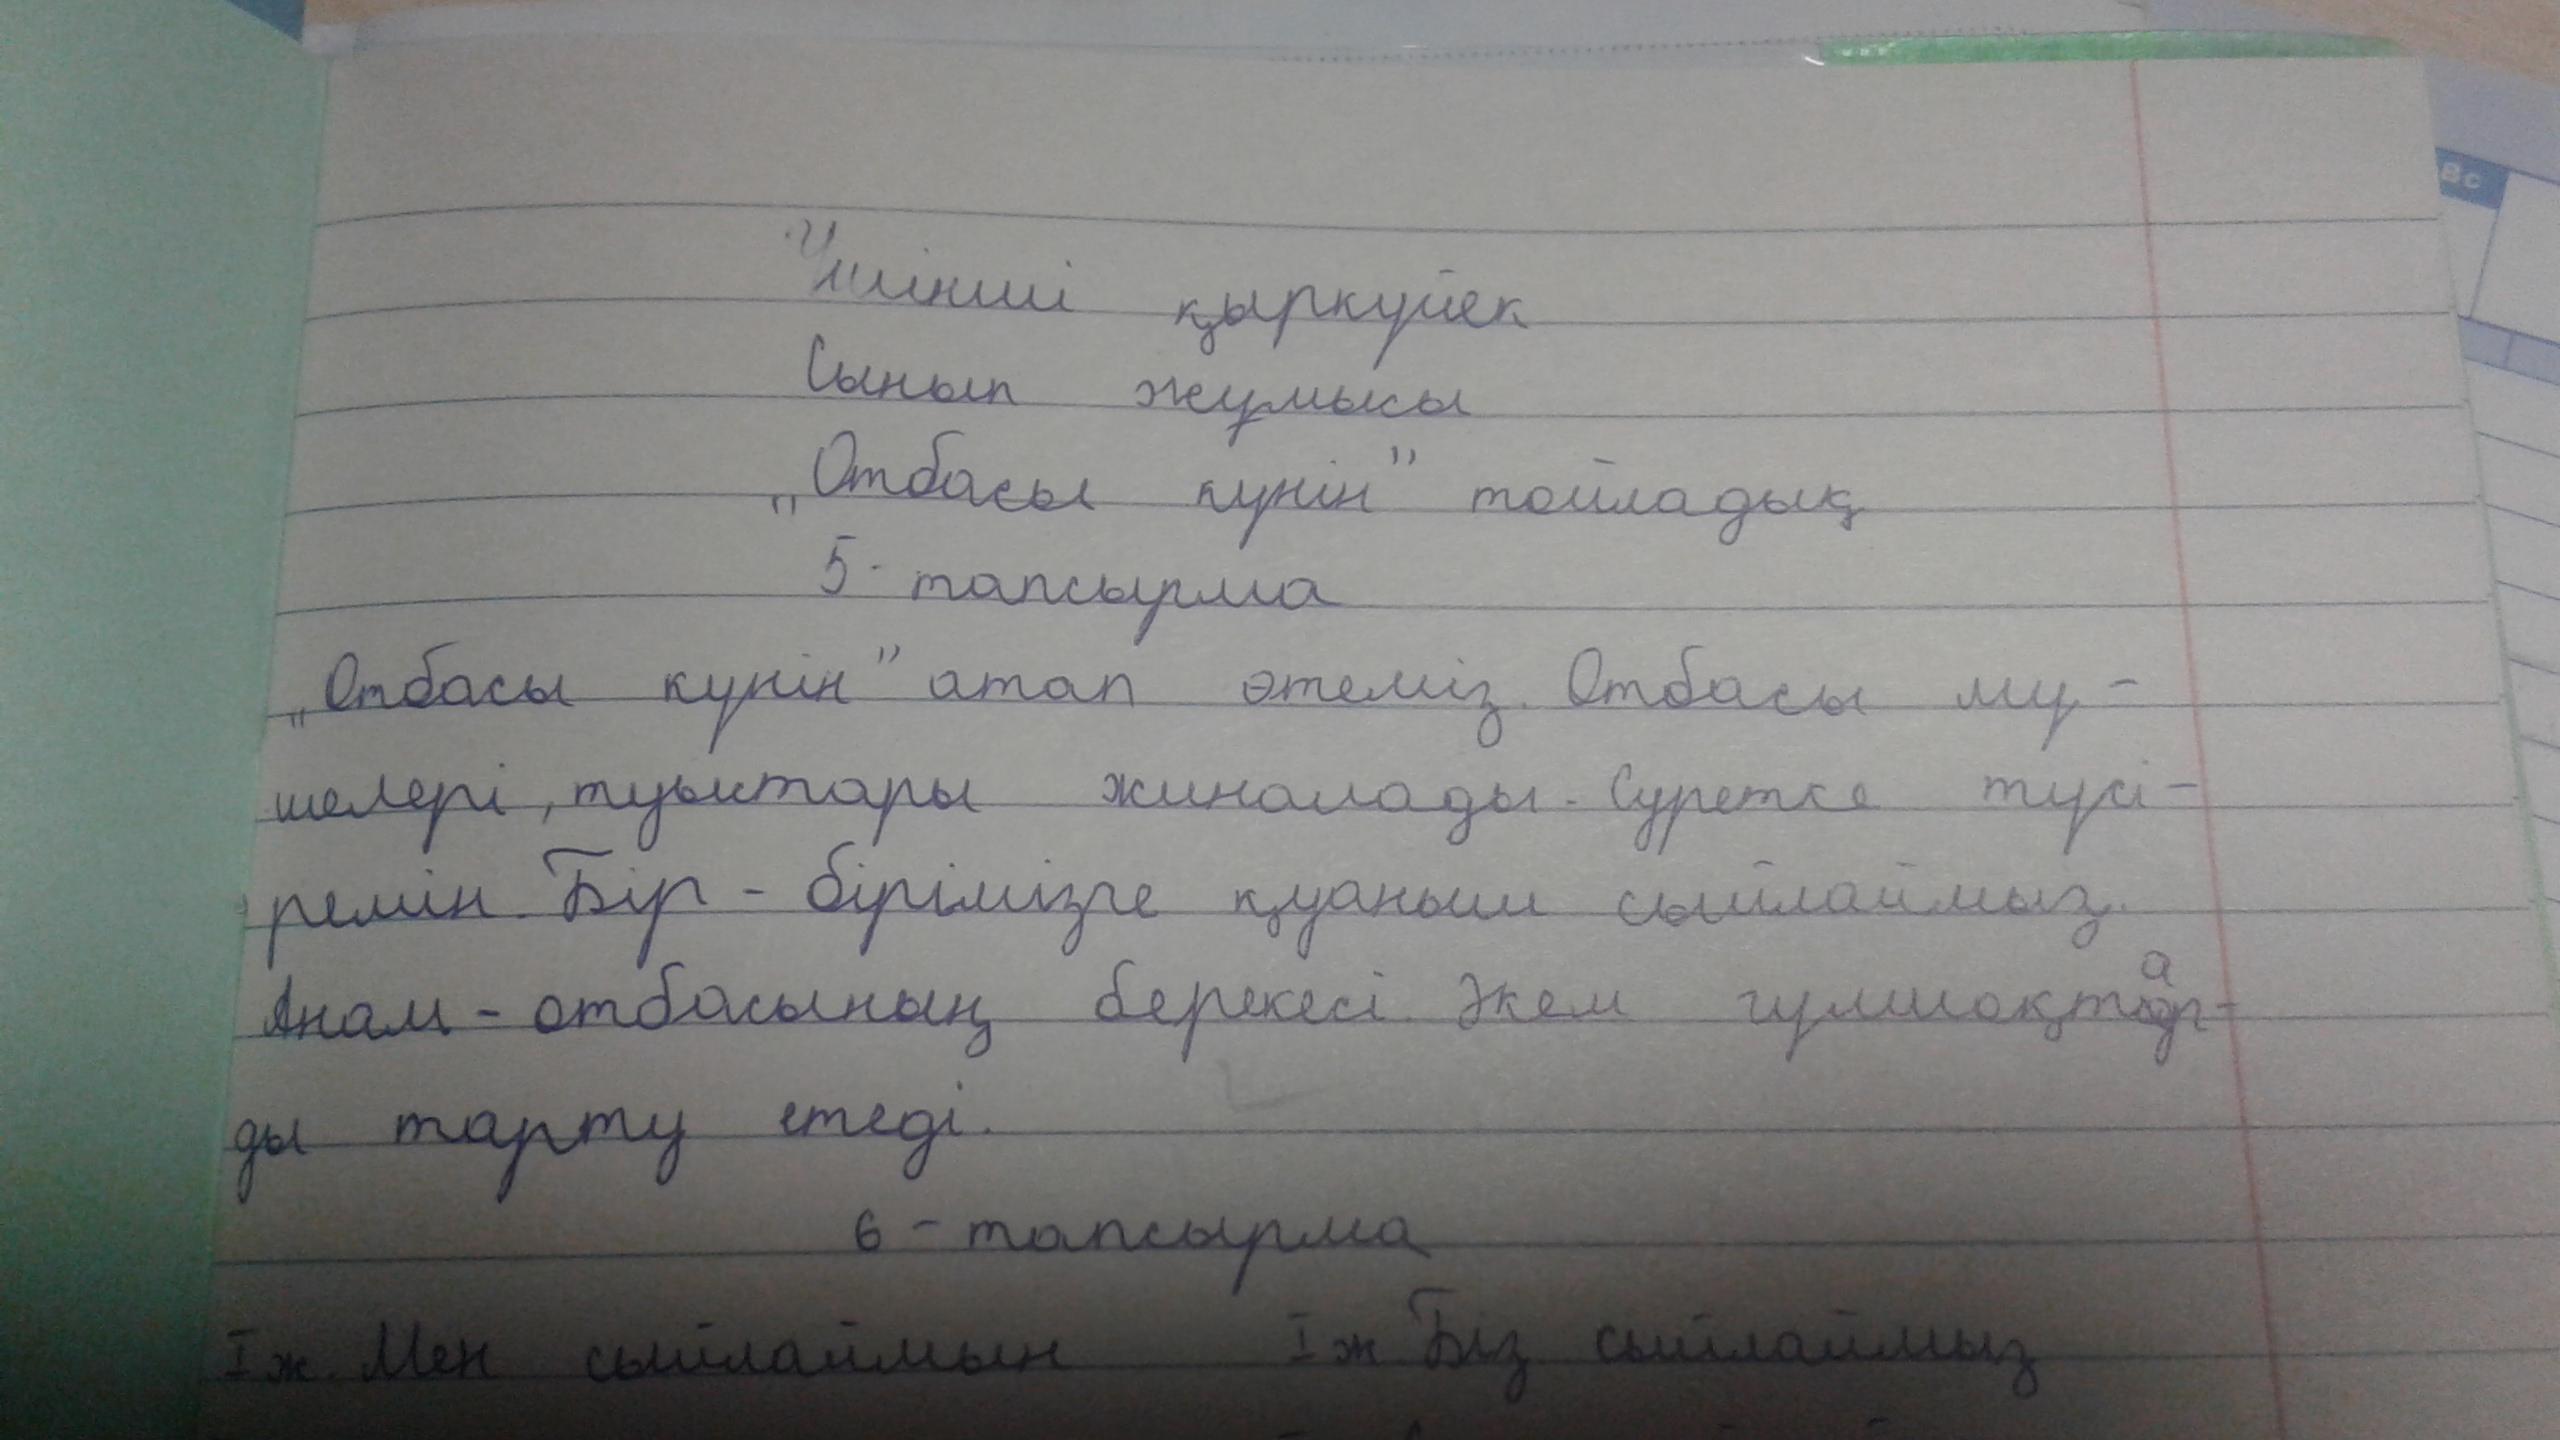 Үшінші қыркүйек
Сынып жұмысы
„Отбасы күнін” тойладық
5-тапсырма
„Отбасы күнін” атап өтеміз. Отбасы мү-
шелері, туыстары жиналады. Суретке түсі-
ремін. Бір-бірімізге қуаныш сыйлаймыз.
Анам - отбасының берекесі. Әкем гүлшоқтар-
ды тарту етеді.
6 - тапсырма
I ж. Мен сыйлаймын I ж Біз сыйлаймыз
Вс